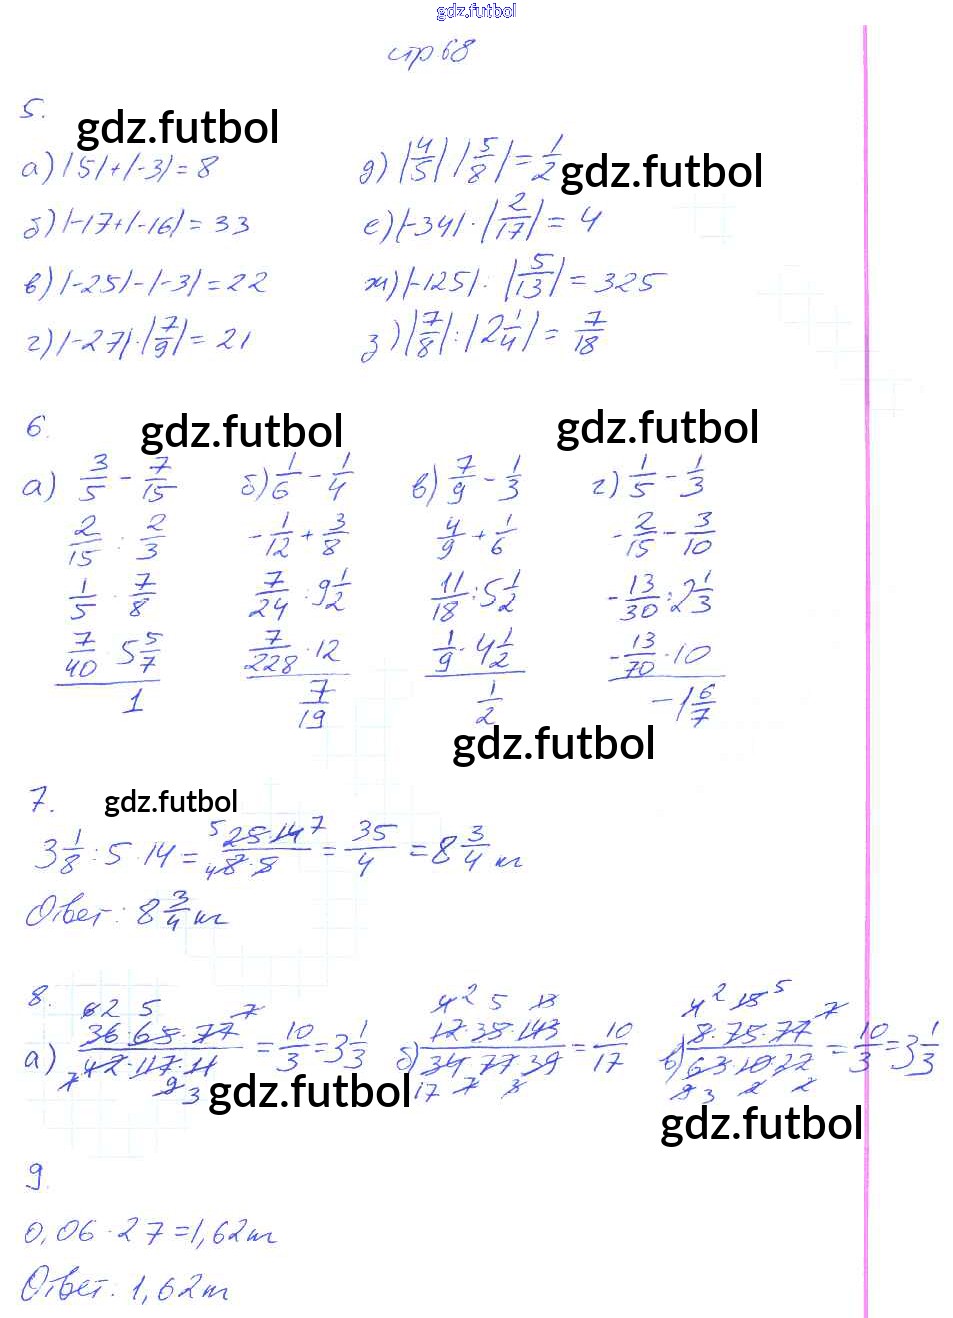 gdz.futbol
стр 68
5.
gdz.futbol
а) |5|+|-3|=8
д) |4/5| |5/8|=1/2
gdz.futbol
б) |-17+|-16|=33
е) |-34|·|2/17|=4
в) |-25|-|-3|=22
ж) |-125|:|5/13|=325
г) |-27|·|7/9|=21
з) |7/8|:|2 1/4|=7/18
6.
gdz.futbol
gdz.futbol
а) 3/5 - 7/15
2/15 : 2/3
1/5 · 7/8
7/40 · 5 5/7
1
б) 1/6 - 1/4
-1/12 + 3/8
7/24 : 9 1/2
7/228 · 12
7/19
в) 7/9 - 1/3
4/9 + 1/6
11/18 : 5 1/2
1/9 · 4 1/2
1/2
г) 1/5 - 1/3
-2/15 - 3/10
-13/30 : 2 1/3
-13/70 · 10
-1 6/7
gdz.futbol
7.
gdz.futbol
3 1/8 : 5 · 14 = 25·14/8·5 = 35/4 = 8 3/4 т
Ответ: 8 3/4 т
8.
а) 36·65·77/42·117·11 = 10/3 = 3 1/3
б) 12·35·143/34·77·39 = 10/17
в) 8·75·77/63·10·22 = 10/3 = 3 1/3
gdz.futbol
gdz.futbol
9.
0,06·27=1,62т
Ответ: 1,62т